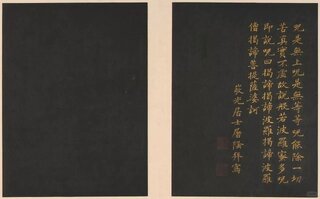 咒是無上咒是無等等咒能除一切
苦真實不虛故說般若波羅蜜多咒
即說咒曰揭諦揭諦波羅揭諦波羅
僧揭諦菩提薩婆訶
居士屠倬拜寫